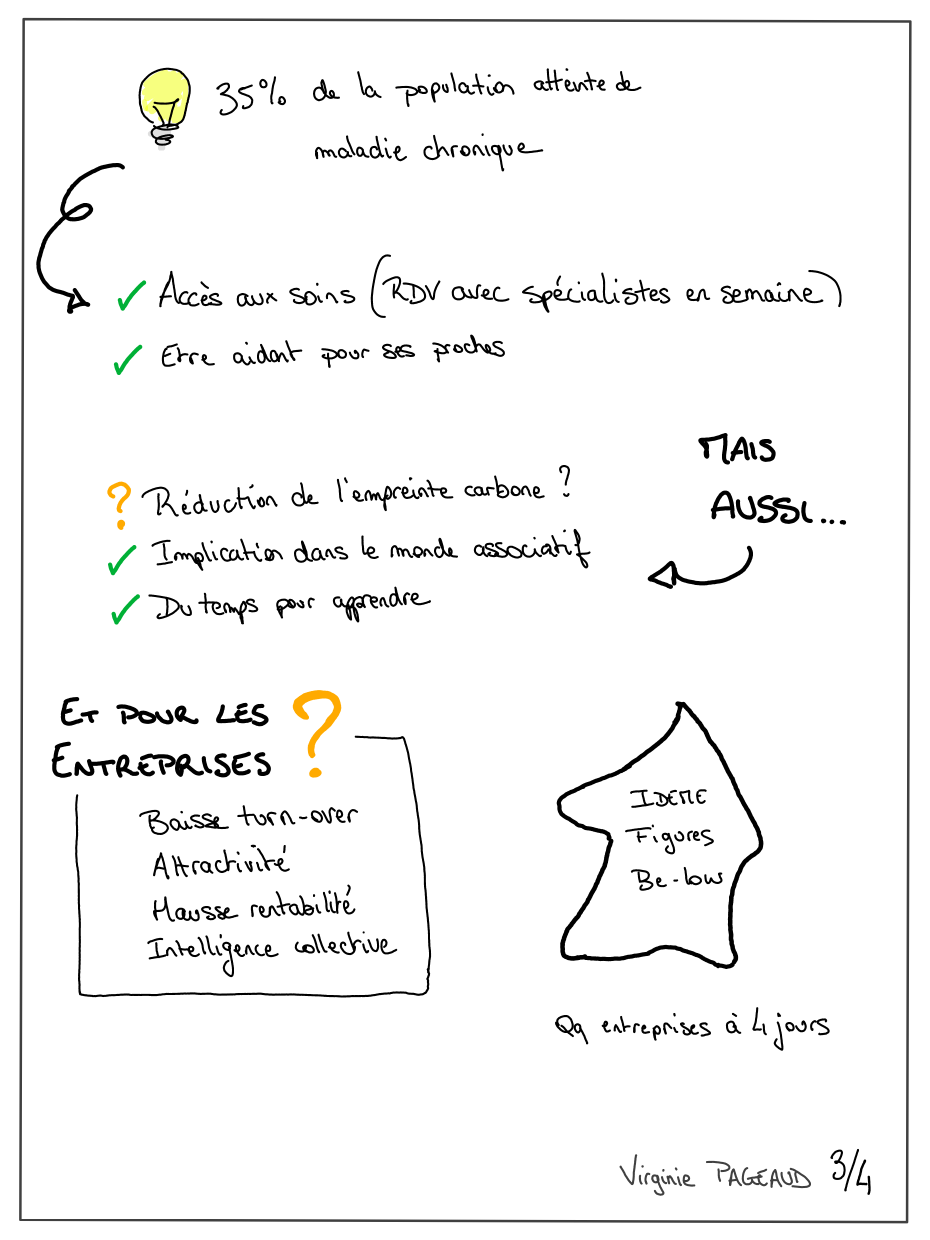 35% de la population atteinte de
maladie chronique
Accès aux soins (RDV avec spécialistes en semaine)
Etre aidant pour ses proches
MAIS
AUSSI...
? Réduction de l'empreinte carbone ?
Implication dans le monde associatif
Du temps pour apprendre
ET POUR LES
ENTREPRISES ?
Baisse turn-over
Attractivité
Hausse rentabilité
Intelligence collective
IDEME
Figures
Be-low
Qq entreprises à 4 jours
Virginie PAGEAUD 3/4